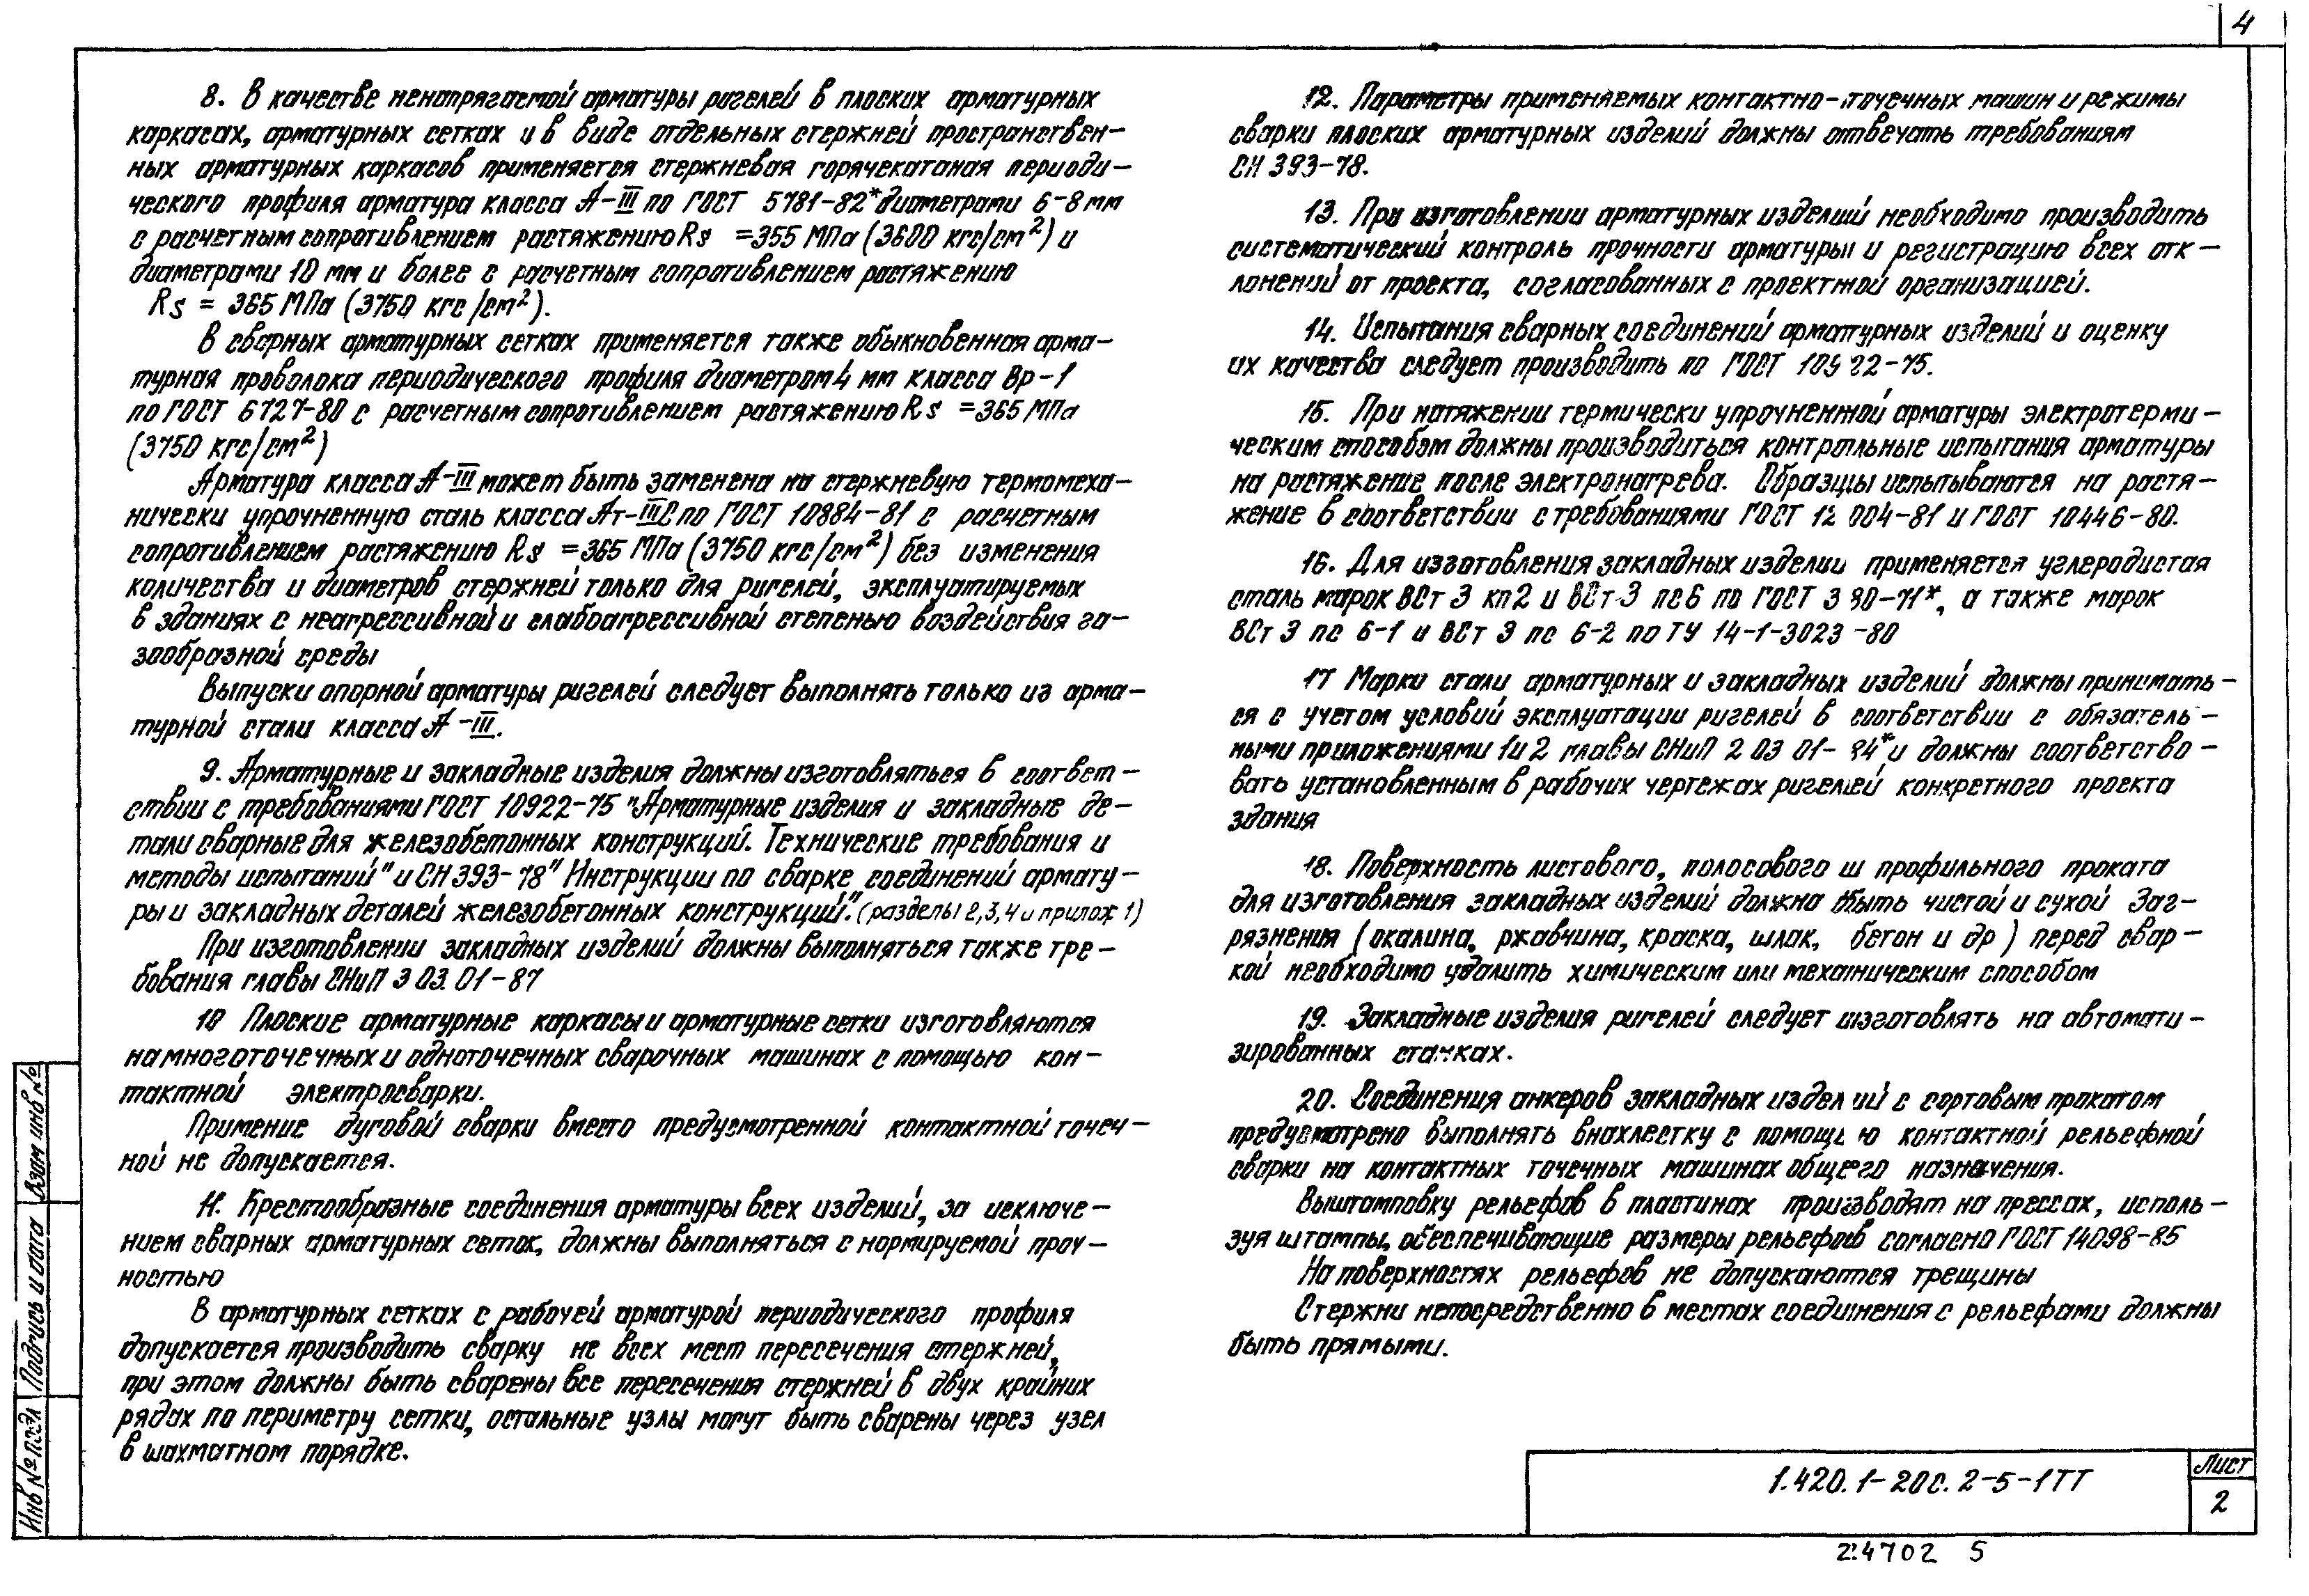 4
8. В качестве ненапрягаемой арматуры ригелей в плоских арматурных
каркасах, арматурных сетках и в виде отдельных стержней пространствен-
ных арматурных каркасов применяется стержневая горячекатаная периоди-
ческого профиля арматура класса А-III по ГОСТ 5781-82* диаметрами 6-8 мм
с расчетным сопротивлением растяжению Rs =355 МПа (3600 кгс/см²) и
диаметрами 10 мм и более с расчетным сопротивлением растяжению
Rs = 365 МПа (3750 кгс/см²).
В сварных арматурных сетках применяется также обыкновенная арма-
турная проволока периодического профиля диаметром 4 мм класса Вр-1
по ГОСТ 6727-80 с расчетным сопротивлением растяжению Rs =365 МПа
(3750 кгс/см²)
Арматура класса А-III может быть заменена на стержневую термомеха-
нически упрочненную сталь класса Ат-IIIС по ГОСТ 10884-81 с расчетным
сопротивлением растяжению Rs =365 МПа (3750 кгс/см²) без изменения
количества и диаметров стержней только для ригелей, эксплуатируемых
в зданиях с неагрессивной и слабоагрессивной степенью воздействия га-
зообразной среды
Выпуски опорной арматуры ригелей следует выполнять только из арма-
турной стали класса А-III.
9. Арматурные и закладные изделия должны изготовляться в соответ-
ствии с требованиями ГОСТ 10922-75 "Арматурные изделия и закладные де-
тали сварные для железобетонных конструкций. Технические требования и
методы испытаний" и СН 393-78 "Инструкции по сварке соединений армату-
ры и закладных деталей железобетонных конструкций". (разделы 2,3,4 и прилож 1)
При изготовлении закладных изделий должны выполняться также тре-
бования главы СНиП 3 03. 01-87
10 Плоские арматурные каркасы и арматурные сетки изготовляются
на многоточечных и одноточечных сварочных машинах с помощью кон-
тактной электросварки.
Примение дуговой сварки вместо предусмотренной контактной точеч-
ной не допускается.
11. Крестообразные соединения арматуры всех изделий, за исключе-
нием сварных арматурных сеток, должны выполняться с нормируемой проч-
ностью
В арматурных сетках с рабочей арматурой периодического профиля
допускается производить сварку не всех мест пересечения стержней,
при этом должны быть сварены все пересечения стержней в двух крайних
рядах по периметру сетки, остальные узлы могут быть сварены через узел
в шахматном порядке.
12. Параметры применяемых контактно-точечных машин и режимы
сварки плоских арматурных изделий должны отвечать требованиям
СН 393-78.
13. При изготовлении арматурных изделий необходимо производить
систематический контроль прочности арматуры и регистрацию всех отк-
лонений от проекта, согласованных с проектной организацией.
14. Испытания сварных соединений арматурных изделий и оценку
их качества следует производить по ГОСТ 10922-75.
15. При натяжении термически упрочненной арматуры электротерми-
ческим способом должны производиться контрольные испытания арматуры
на растяжение после электронагрева. Образцы испытываются на растя-
жение в соответствии с требованиями ГОСТ 12 004-81 и ГОСТ 10446-80.
16. Для изготовления закладных изделии применяется углеродистая
сталь марок ВСт 3 кп2 и ВСт 3 пс6 по ГОСТ 380-71*, а также марок
ВСт 3 пс 6-1 и ВСт 3 пс 6-2 по ТУ 14-1-3023-80
17 Марки стали арматурных и закладных изделий должны принимать-
ся с учетом условий эксплуатации ригелей в соответствии с обязатель-
ными приложениями 1 и 2 главы СНиП 2 03 01-84* и должны соответство-
вать установленным в рабочих чертежах ригелей конкретного проекта
здания
18. Поверхность листового, полосового и профильного проката
для изготовления закладных изделий должна быть чистой и сухой Заг-
рязнения (окалина, ржавчина, краска, шлак, бетон и др) перед свар-
кой необходимо удалить химическим или механическим способом
19. Закладные изделия ригелей следует изготовлять на автомати-
зированных станках.
20. Соединения анкеров закладных изделий с сортовым прокатом
предусмотрено выполнять внахлестку с помощью контактной рельефной
сварки на контактных точечных машинах общего назначения.
Выштамповку рельефов в пластинах производят на прессах, исполь-
зуя штампы, обеспечивающие размеры рельефов согласно ГОСТ 14098-85
На поверхностях рельефов не допускаются трещины
Стержни непосредственно в местах соединения с рельефами должны
быть прямыми.
Инв № подл
Подпись и дата
Взам инв №
1.420.1-20с.2-5-1ТТ
Лист
2
24702 5